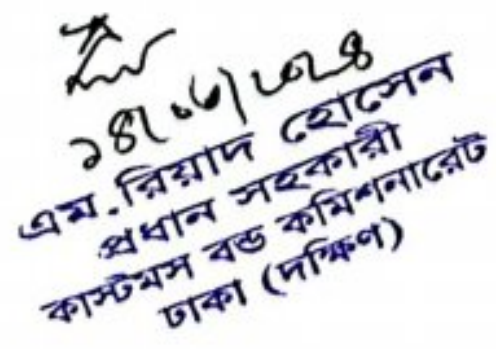 ১৪/০৬/২০২৪
এম. রিয়াদ হোসেন
প্রধান সহকারী
কাস্টমস বন্ড কমিশনারেট
ঢাকা (দক্ষিণ)